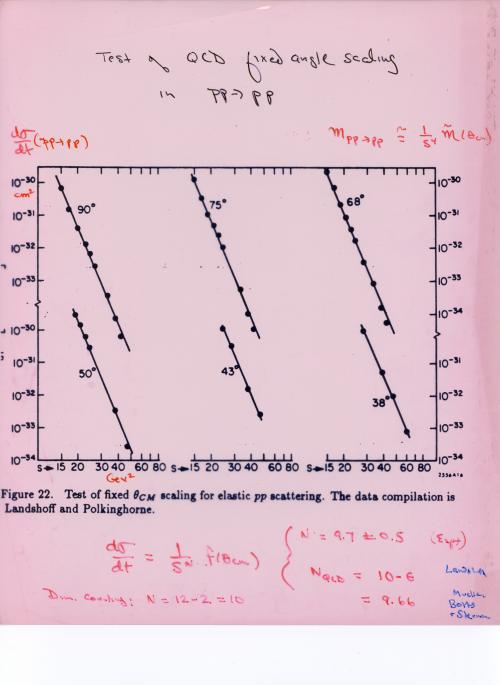 Test of QCD fixed angle scaling
in pp→pp
dσ/dt (pp→pp)
M pp→pp ≅ 1/s⁴ M̃(θcm)
10-30 10-30
cm²
90° 75° 68°
10-31 10-31
10-32 10-32
10-33 10-33
10-34
10-30
10-31 10-31
50° 43° 38°
10-32 10-32
10-33 10-33
10-34 10-34
S→15 20 30 40 60 80 S→15 20 30 40 60 80 S→15 20 30 40 60 80
GeV² 2556A16
Figure 22. Test of fixed θCM scaling for elastic pp scattering. The data compilation is
Landshoff and Polkinghorne.
N = 9.7 ± 0.5 (Expt)
dσ/dt = 1/s^N f(θcm)
N QCD = 10-6
Landshoff
Dim. Counting: N = 12-2 = 10
= 9.66
Mueller
Botts
+ Sterman